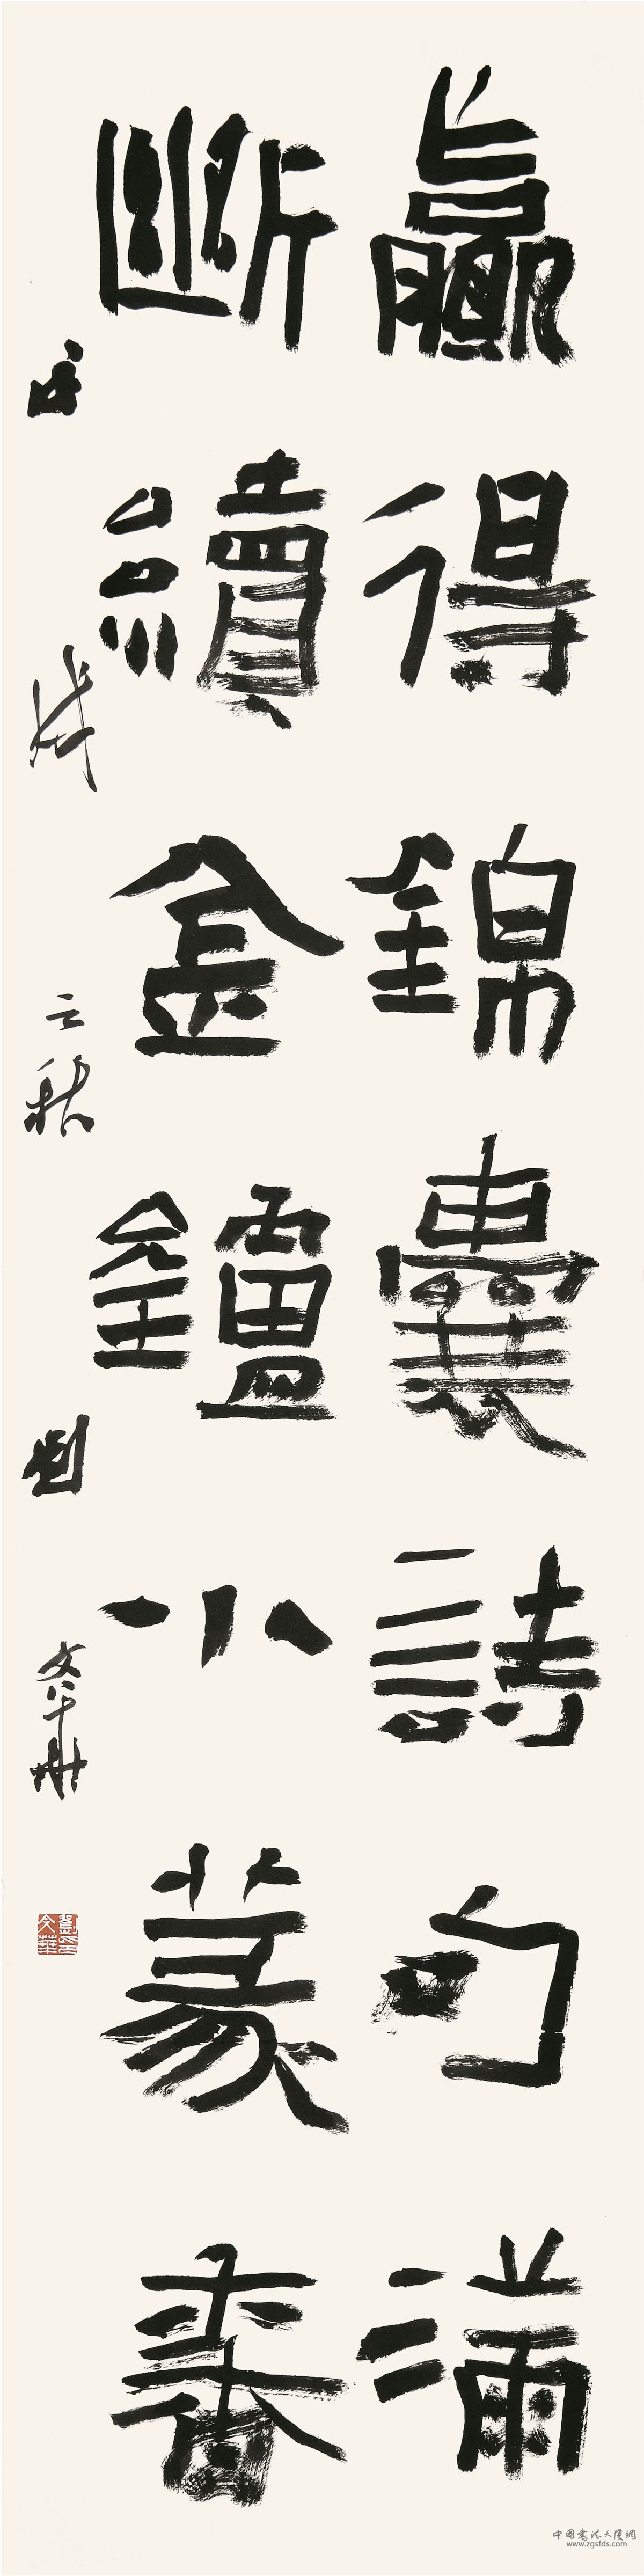 贏得錦囊詩句滿
斷續金鑪小篆香
戌之秋劉文華
中國書法大厦網
www.zgsfds.com